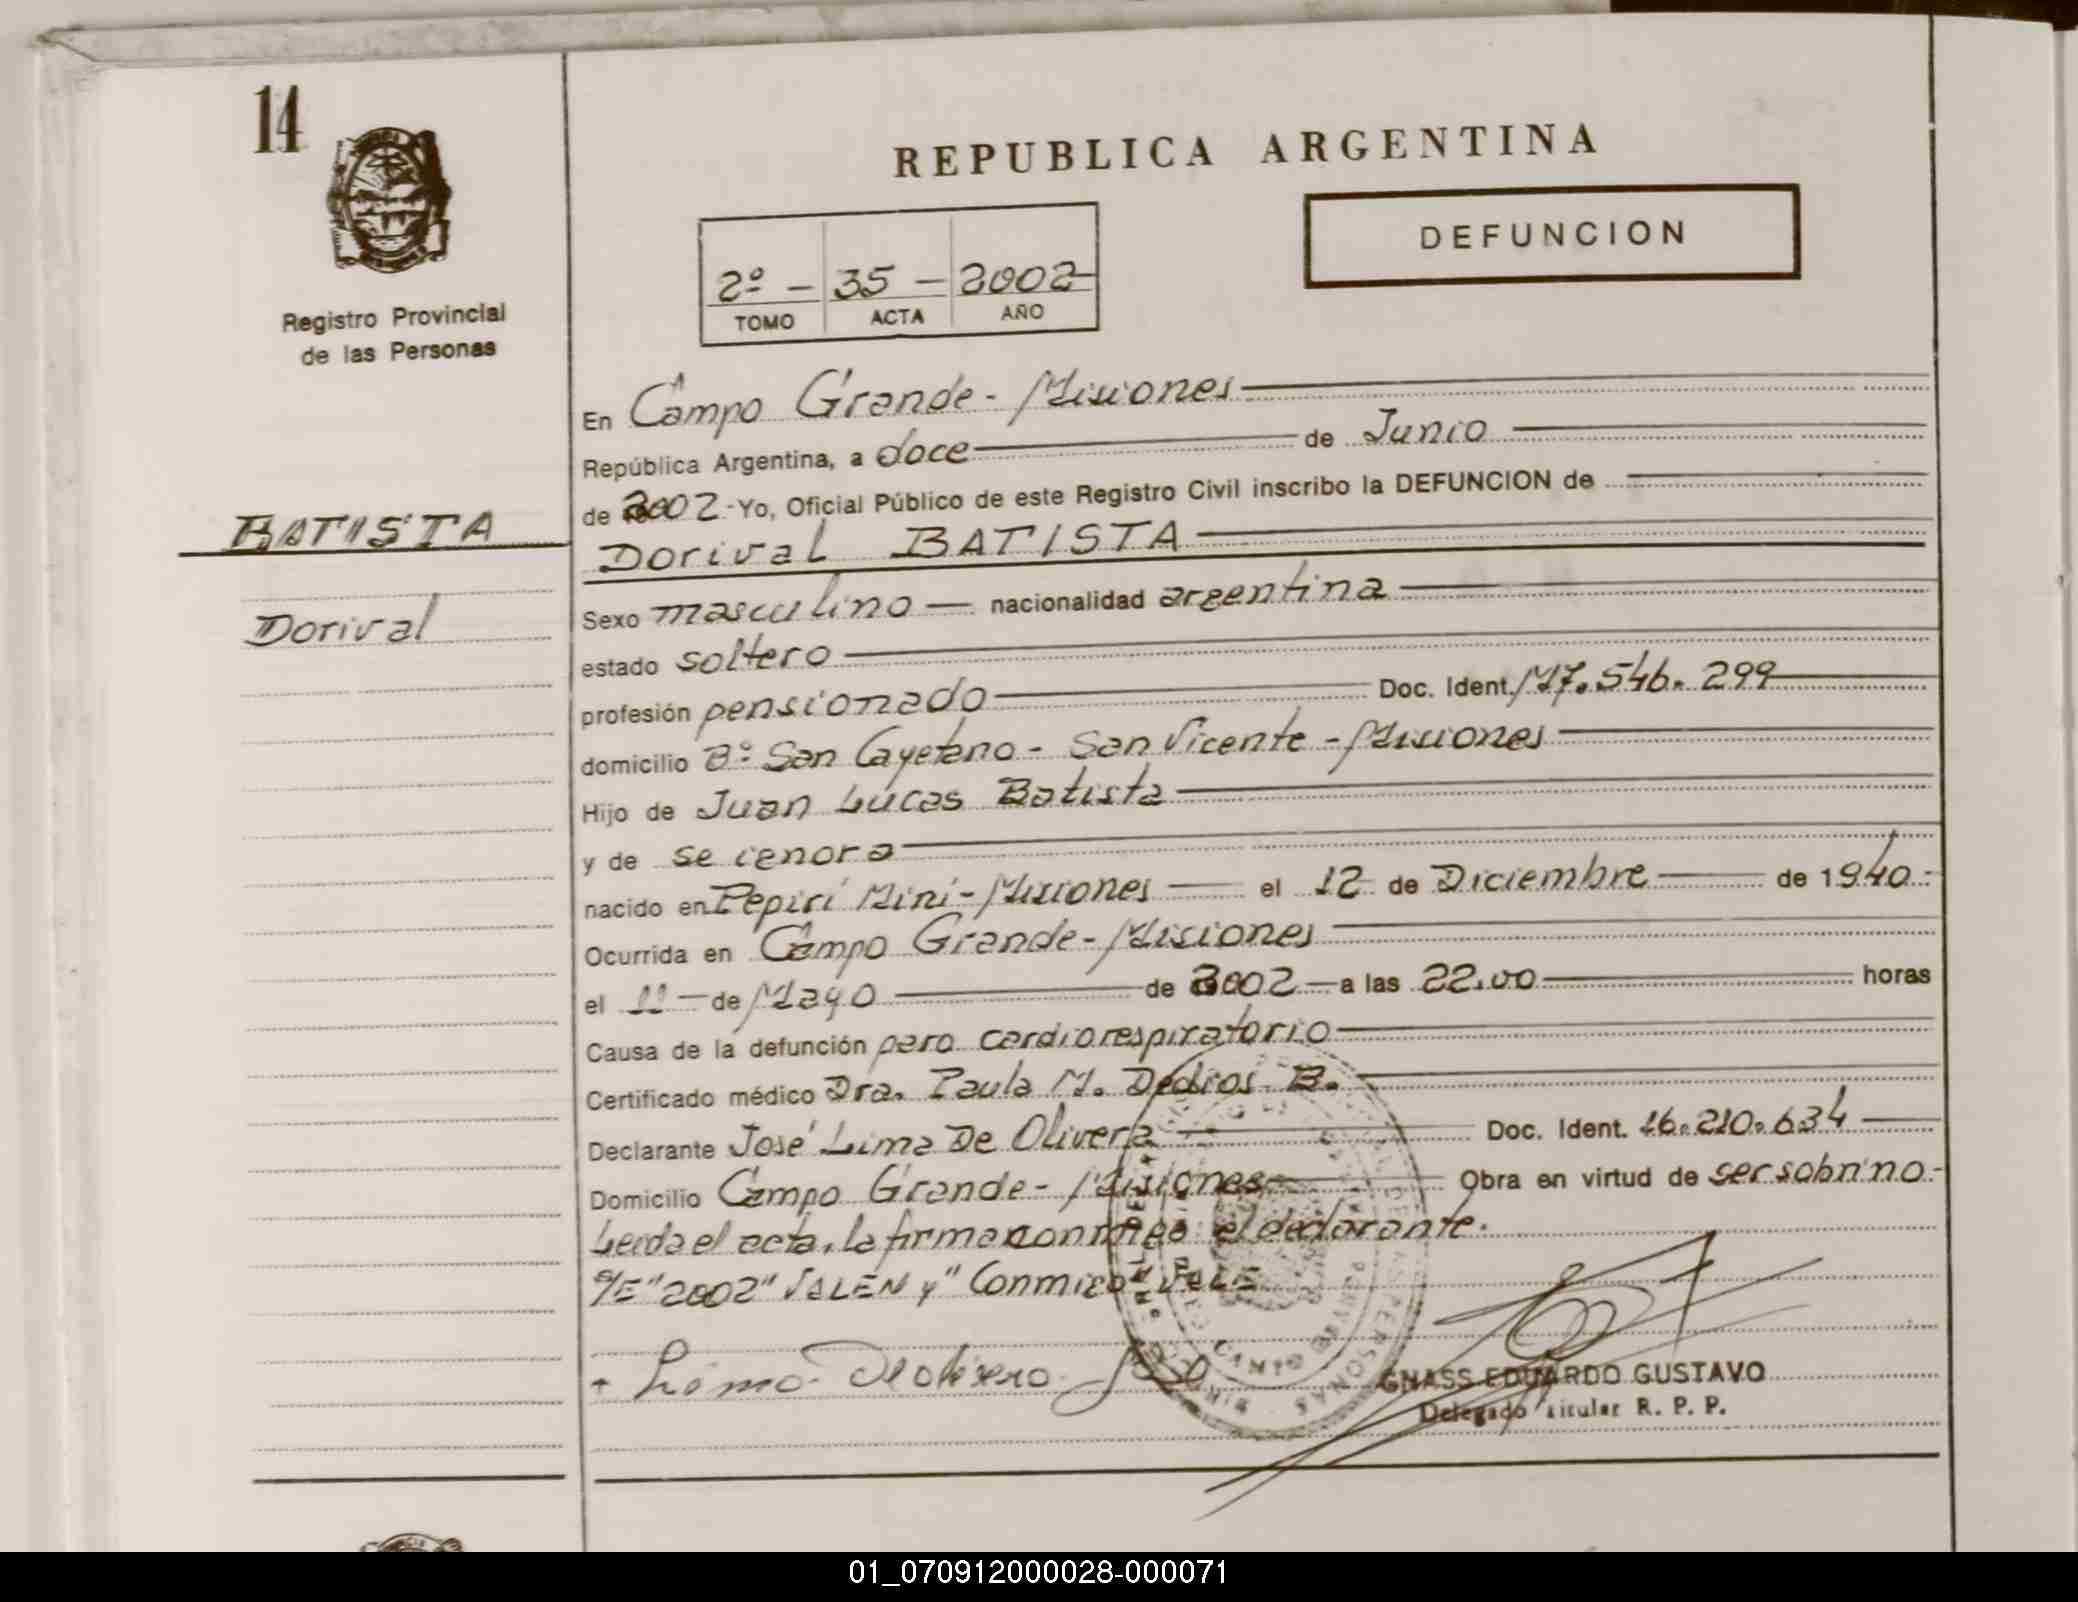 14
REPUBLICA ARGENTINA
DEFUNCION
2º - 35 - 2002
TOMO ACTA AÑO
Registro Provincial
de las Personas
BATISTA
Dorival
En Campo Grande - Misiones
República Argentina, a doce de Junio
de 2002 - Yo, Oficial Público de este Registro Civil inscribo la DEFUNCION de
Dorival BATISTA
Sexo masculino — nacionalidad argentina
estado soltero
profesión pensionado Doc. Ident. M7.546.299
domicilio Bº San Cayetano - San Vicente - Misiones
Hijo de Juan Lucas Batista
y de se ignora
nacido en Pepirí Miní - Misiones el 12 de Diciembre de 1940.-
Ocurrida en Campo Grande - Misiones
el 11 de Mayo de 2002 — a las 22.00 horas
Causa de la defunción paro cardiorespiratorio
Certificado médico Dra. Paula M. Dedios B.
Declarante José Lima De Olivera Doc. Ident. 16.210.634
Domicilio Campo Grande - Misiones Obra en virtud de ser sobrino.-
Leida el acta, la firma conmigo el declarante.
S/E "2002" VALEN y "Conmigo" VALE
Lima De Olivera José
GNASS EDUARDO GUSTAVO
Delegado Titular R. P. P.
01_070912000028-000071